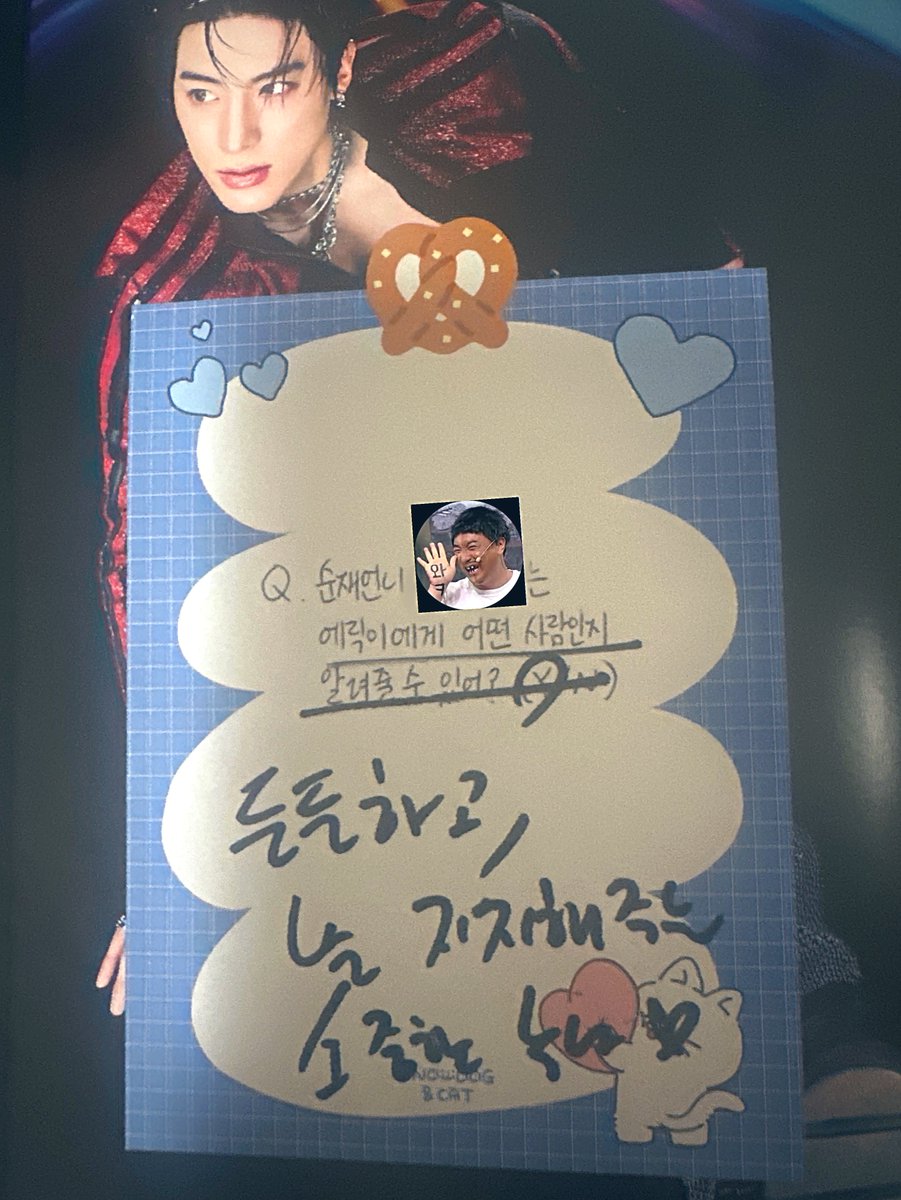 와
Q. 순재언니 는
에릭이에게 어떤 사람인지
알려줄 수 있어? (Y/N)
든든하고,
날 지지해주는
소중한 누나
NOW.DOG
&CAT